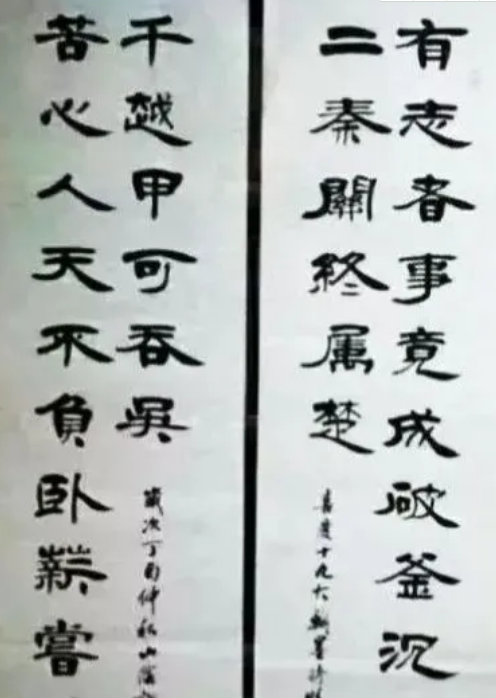 有志者事竟成破釜沉
二秦關終属楚
喜度十九大
苦心人天不負卧薪嘗
千越甲可吞吳
歲次丁酉仲秋山